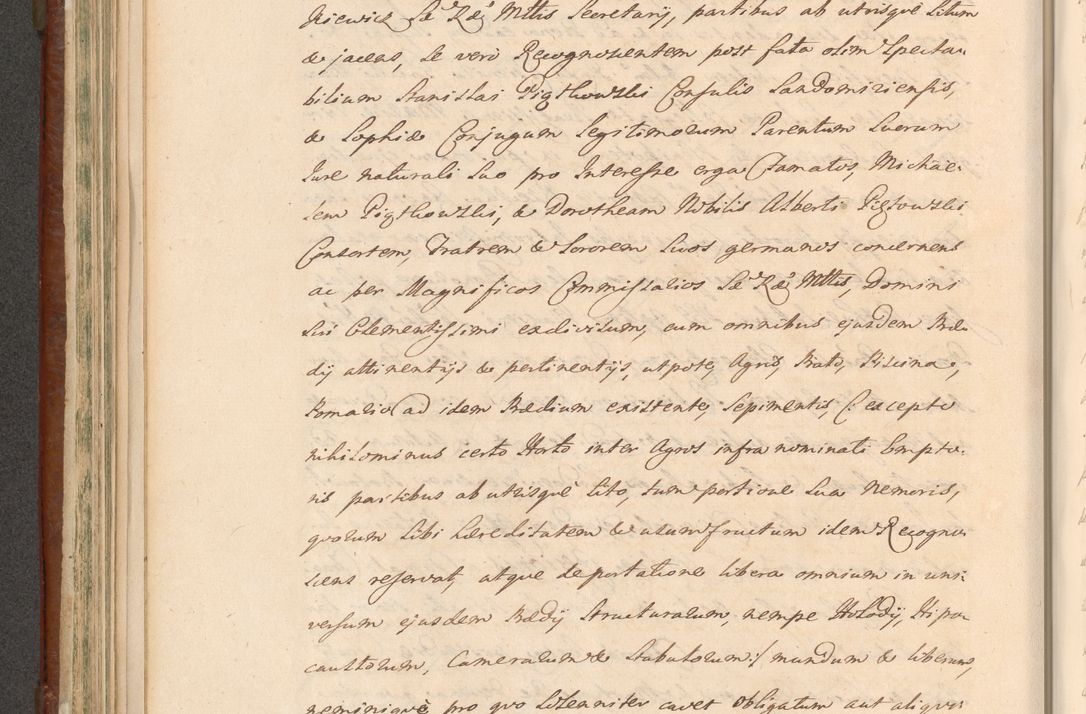 kiewicz Sæ Ræ Mttis Secretarij, partibus ab utrisquè Situm
& jacens, Se verò Recognoscentem post fata olim Specta-
bilium Stanislai Pigthowski Consulis Sandomiriensis,
& Sophiæ Conjugum Legitimorum Parentum Suorum
Iure naturali Suo pro Interesse erga Famatos, Michae-
lem Pigthowski, & Dorotheam Nobilis Alberti Pigłowski
Consortem, Fratrem & Sororem Suos germanos concernens
ac per Magnificos Commissarios Sæ Ræ Mttis, Domini
Sui Clementissimi exdivisum, cum omnibus ejusdem Præ-
dij attinentijs & pertinentijs, utpote, Agris, Prato, Piscina,
Pomario ad idem Prædium existente, Sepimentis, (: excepto
nihilominus certo Horto inter Agros infra nominati Empto-
ris partibus ab utrisquè Sito, tum portione Sua Nemoris,
quorum Sibi hæreditatem & usumfructum idem Recogno-
scens reservat, atque deportatione libera omnium in uni-
versum ejusdem Prædij Structurarum, nempe Hołodij, Hipo-
caustorum, Camerarum & Stabulorum :/ mundum & liberum,
neminiquè pro quo Solenniter cavet Obligatum aut aliquo